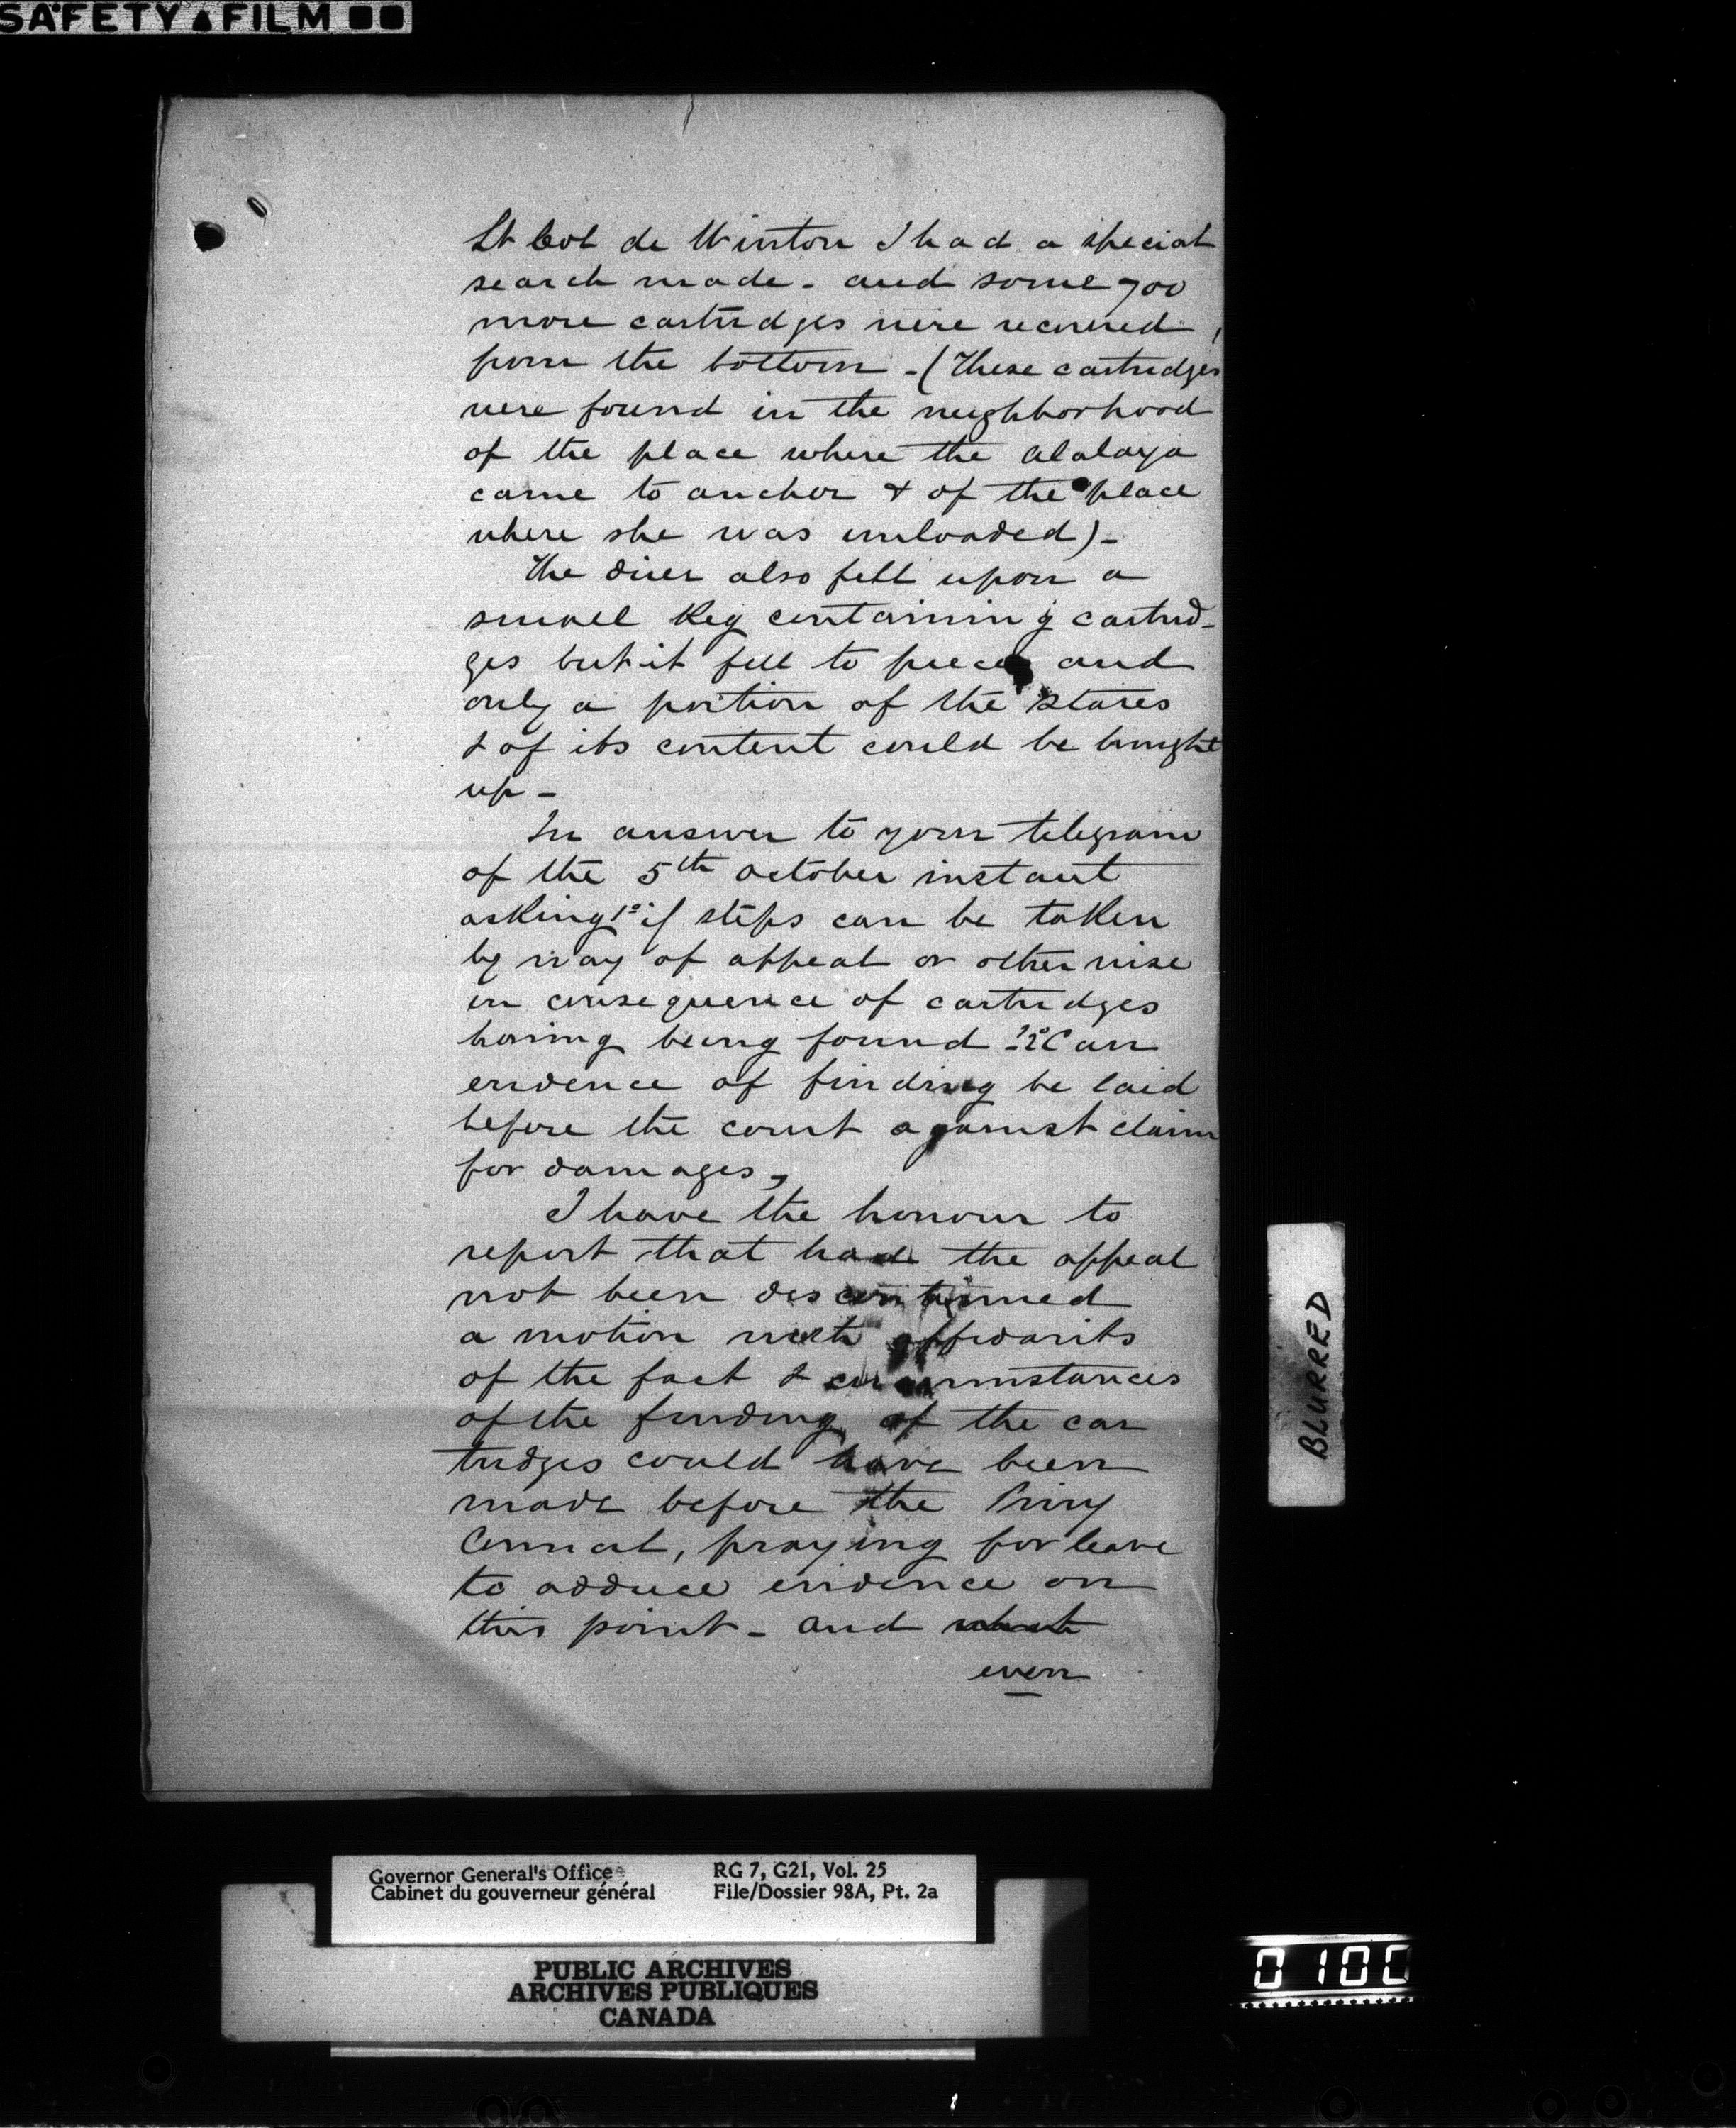 SAFETY FILM
Lt Col de Winton I had a special
search made - and some 700
more cartridges were recovered,
from the bottom - (These cartridges
were found in the neighborhood
of the place where the Atalaya
came to anchor & of the place
where she was unloaded) -
The diver also fell upon a
small Keg containing cartrid-
ges but it fell to pieces and
only a portion of the staves
& of its content could be brought
up -
In answer to your telegram
of the 5th October instant
asking 1º if steps can be taken
by way of appeal or otherwise
in consequence of cartridges
having being found - 2º Can
evidence of finding be laid
before the court against claim
for damages,
I have the honour to
report that had the appeal
not been discontinued
a motion with affidavits
of the fact & circumstances
of the finding of the car
tridges could have been
made before the Privy
Council, praying for leave
to adduce evidence on
this point - and
even
BLURRED
Governor General's Office RG 7, G21, Vol. 25
Cabinet du gouverneur général File/Dossier 98A, Pt. 2a
PUBLIC ARCHIVES
ARCHIVES PUBLIQUES
CANADA
0100